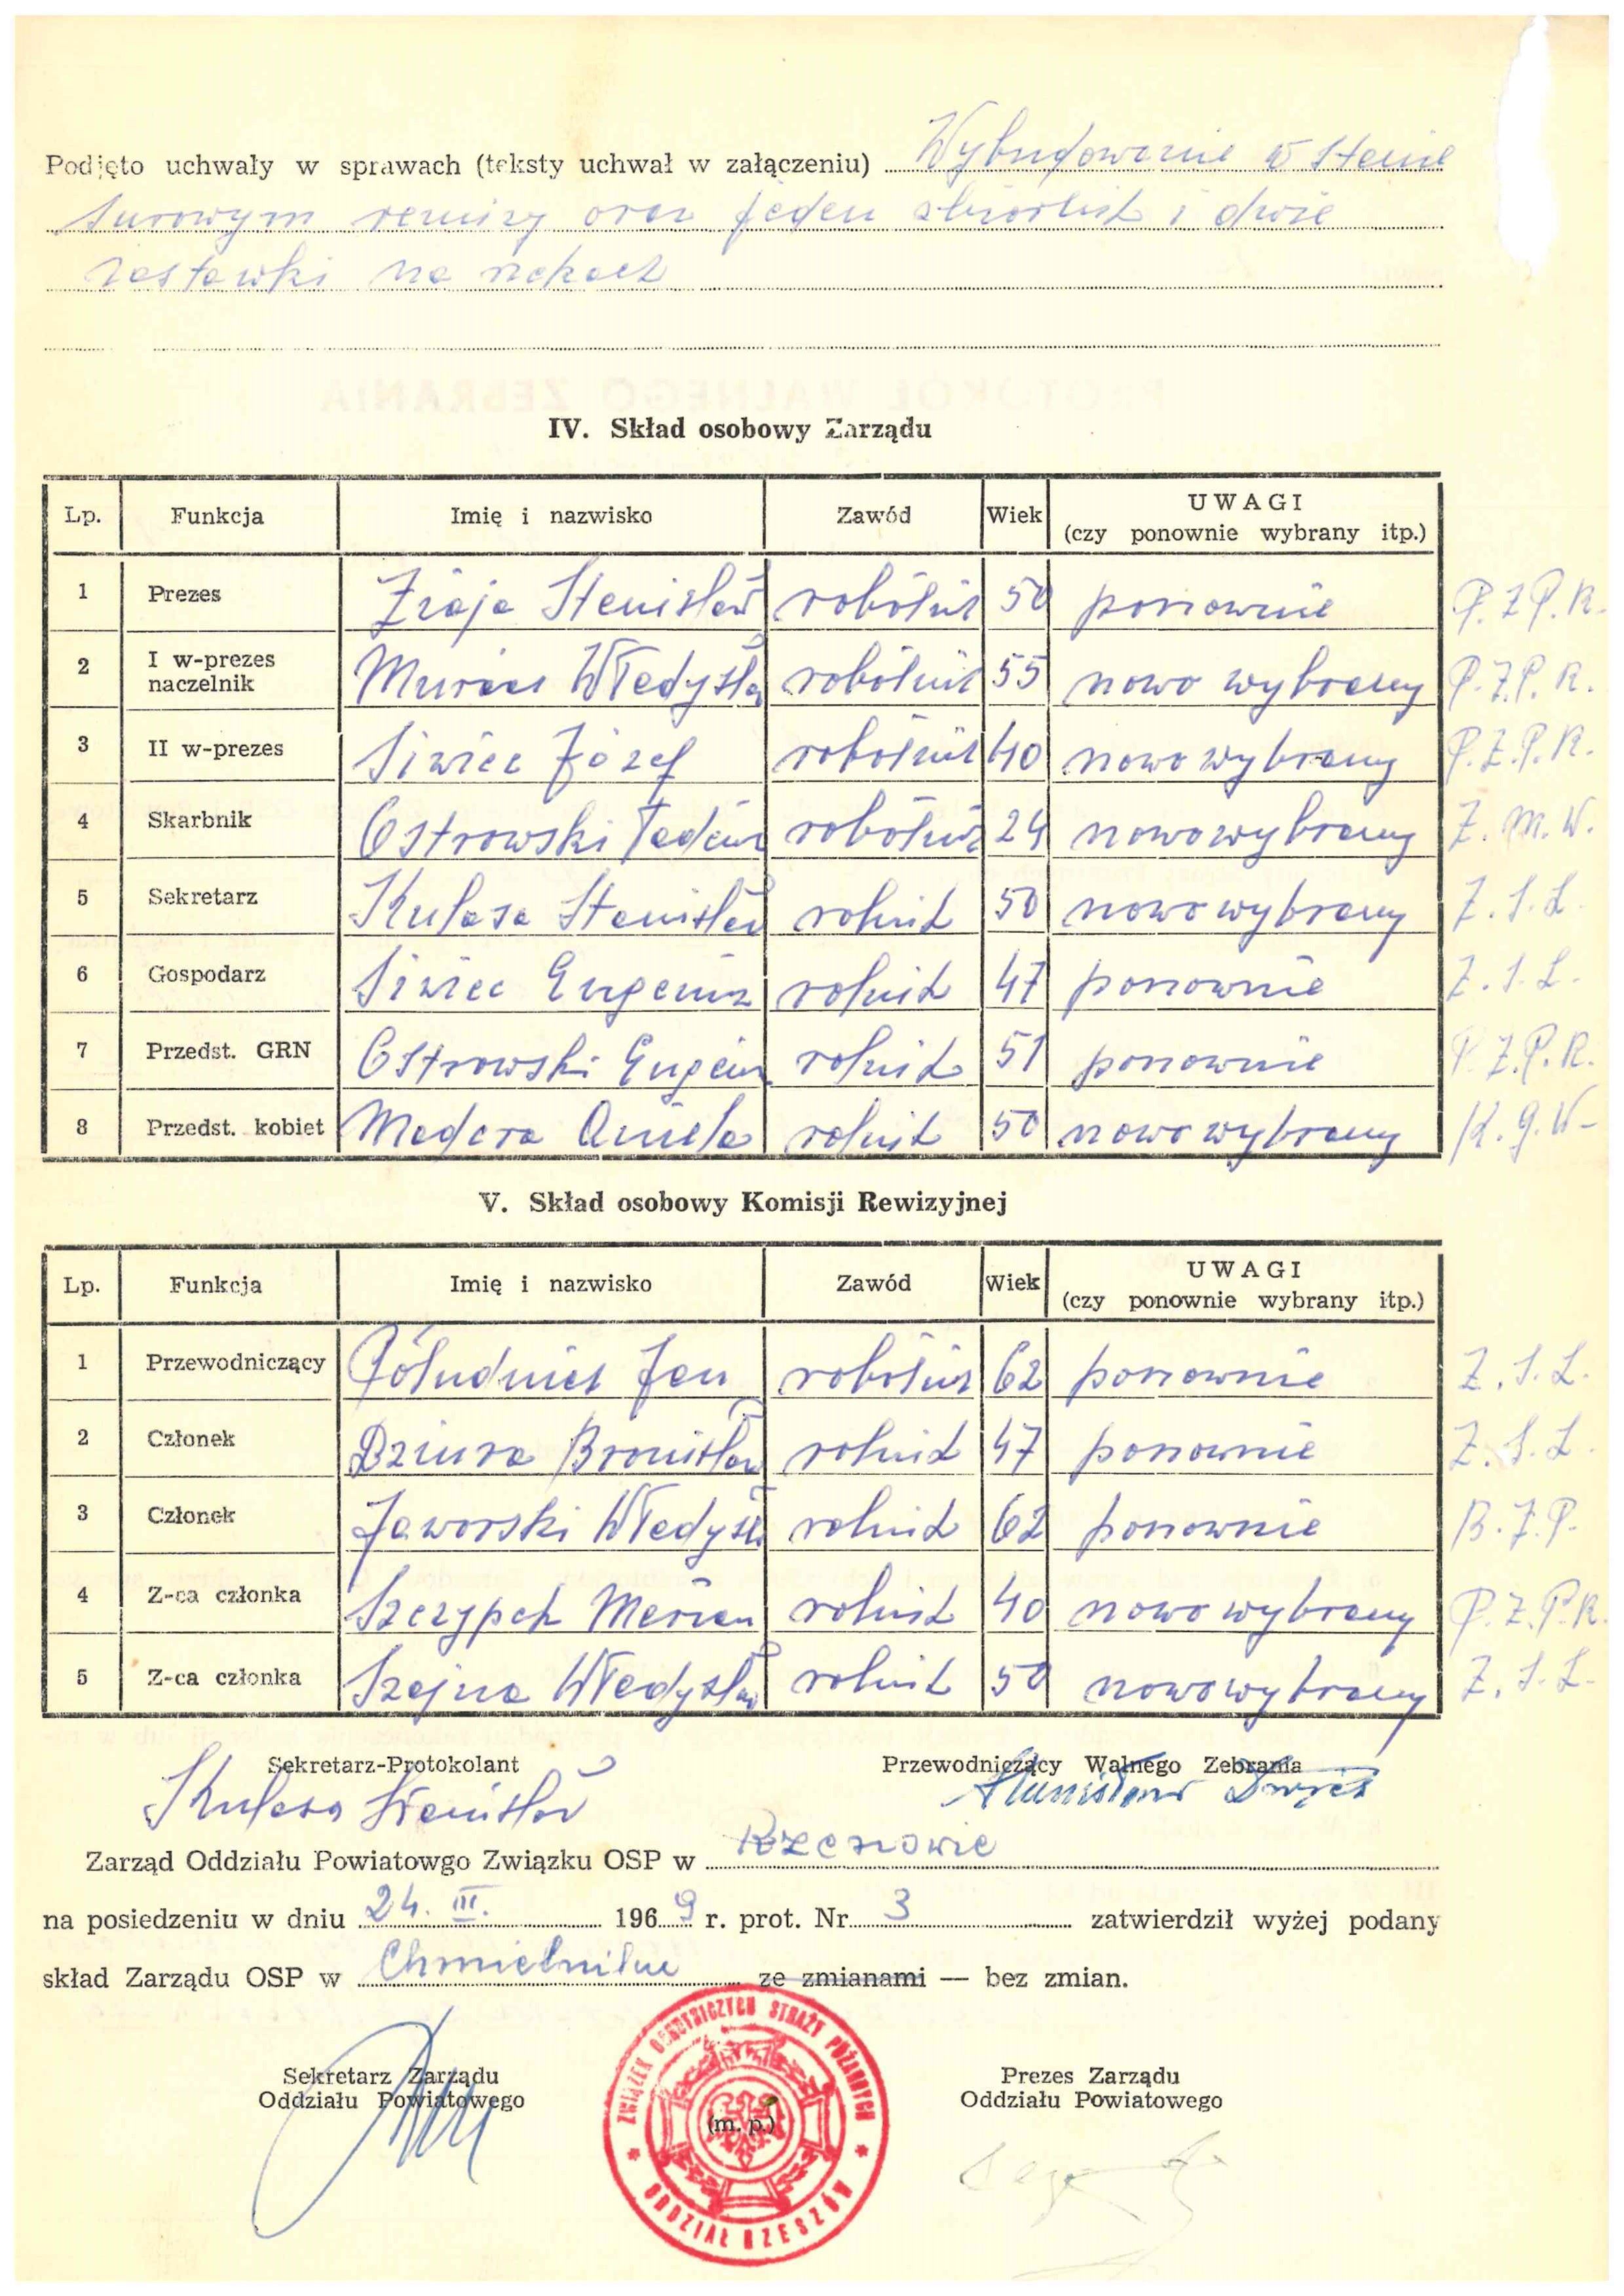 Podjęto uchwały w sprawach (teksty uchwał w załączeniu) Wybudowanie w stanie
surowym remizy oraz jeden zbiornik i dwie
zastawki na rzekach
IV. Skład osobowy Zarządu
Lp. Funkcja Imię i nazwisko Zawód Wiek UWAGI
(czy ponownie wybrany itp.)
1 Prezes Ziaja Stanisław robotnik 50 ponownie P.Z.P.R.
2 I w-prezes naczelnik Władysła robotnik 55 nowo wybrany P.Z.P.R.
3 II w-prezes Siwiec Józef robotnik 40 nowo wybrany P.Z.P.R.
4 Skarbnik Ostrowski Tadeusz robotnik 24 nowo wybrany Z.M.W.
5 Sekretarz Kulasa Stanisław rolnik 50 nowo wybrany Z.S.L.
6 Gospodarz Siwiec Eugeniusz rolnik 47 ponownie Z.S.L.
7 Przedst. GRN Ostrowski Eugeniusz rolnik 51 ponownie P.Z.P.R.
8 Przedst. kobiet Madera Aniela rolnik 50 nowo wybrany K.G.W.
V. Skład osobowy Komisji Rewizyjnej
Lp. Funkcja Imię i nazwisko Zawód Wiek UWAGI
(czy ponownie wybrany itp.)
1 Przewodniczący Południak Jan robotnik 62 ponownie Z.S.L.
2 Członek Dziura Bronisław rolnik 47 ponownie Z.S.L.
3 Członek Jaworski Władysł rolnik 62 ponownie B.Z.P.
4 Z-ca członka Szczypek Marian rolnik 40 nowo wybrany P.Z.P.R.
5 Z-ca członka Szajna Władysław rolnik 50 nowo wybrany Z.S.L.
Sekretarz-Protokolant Przewodniczący Walnego Zebrania
Kulasa Stanisław Stanisław
Zarząd Oddziału Powiatowgo Związku OSP w Rzeszowie
na posiedzeniu w dniu 24. III. 1969 r. prot. Nr 3 zatwierdził wyżej podany
skład Zarządu OSP w Chmielniku ze zmianami — bez zmian.
Sekretarz Zarządu Prezes Zarządu
Oddziału Powiatowego Oddziału Powiatowego
(m. p.)
ZWIĄZEK OCHOTNICZYCH STRAŻY POŻARNYCH
ODDZIAŁ RZESZÓW